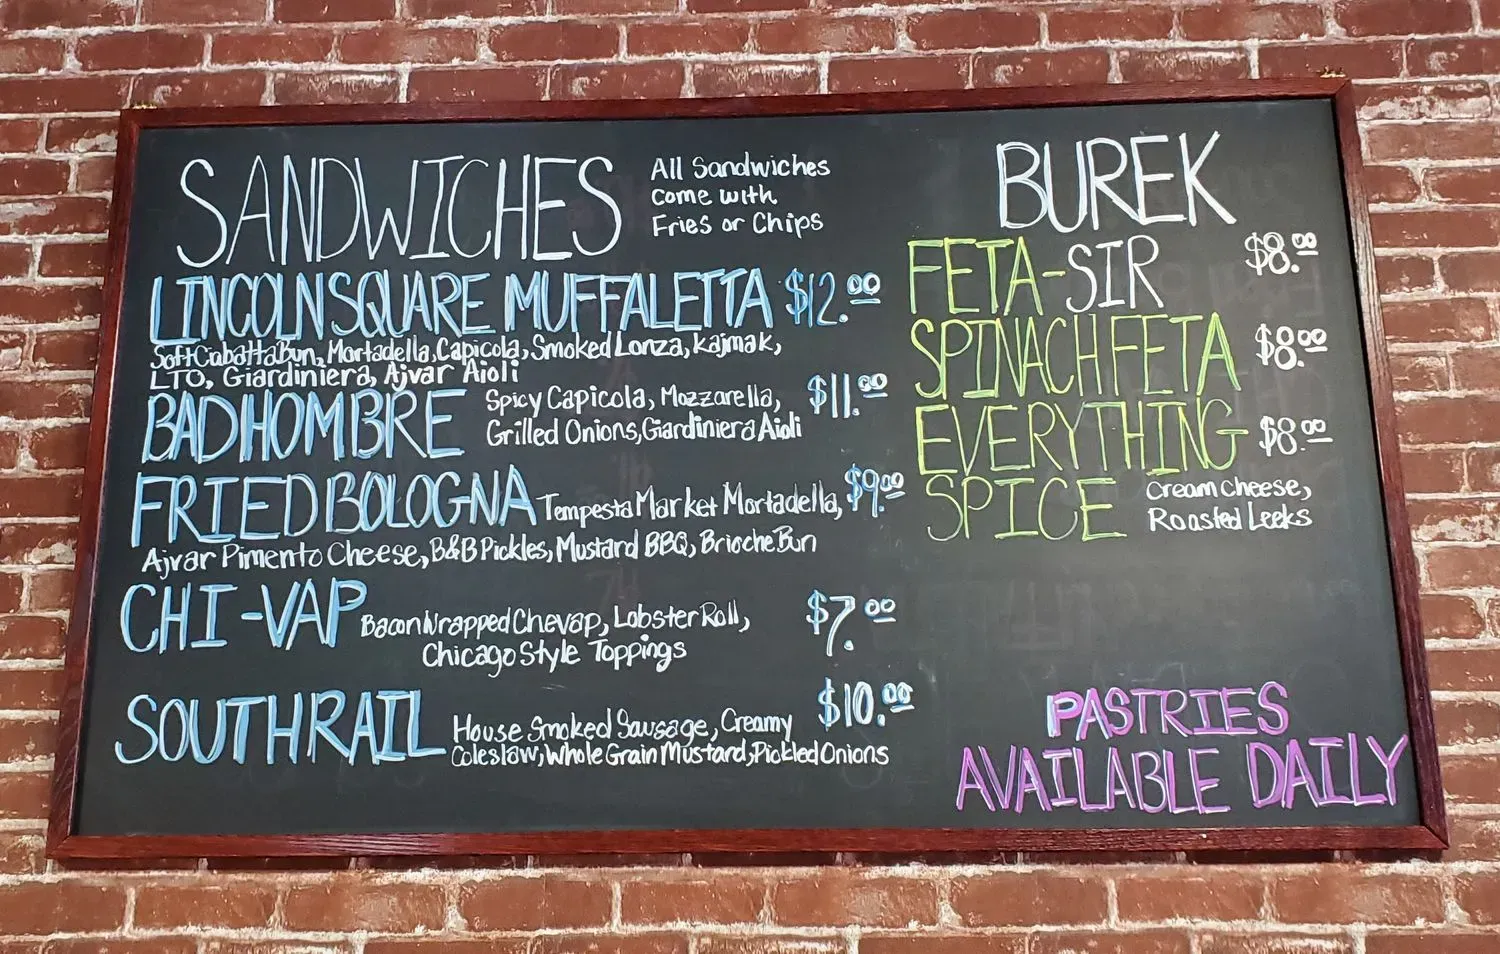 SANDWICHES
All Sandwiches
come with
Fries or Chips
LINCOLN SQUARE MUFFALETTA $12.00
Soft Ciabatta Bun, Mortadella, Capicola, Smoked Lonza, Kajmak,
LTO, Giardiniera, Ajvar Aioli
BADHOMBRE Spicy Capicola, Mozzarella, $11.00
Grilled Onions, Giardiniera Aioli
FRIED BOLOGNA Tempesta Market Mortadella, $9.00
Ajvar Pimento Cheese, B&B Pickles, Mustard BBQ, Brioche Bun
CHI-VAP Bacon Wrapped Chevap, Lobster Roll, $7.00
Chicago Style Toppings
SOUTHRAIL House Smoked Sausage, Creamy $10.00
Coleslaw, Whole Grain Mustard, Pickled Onions
BUREK
FETA-SIR $8.00
SPINACH FETA $8.00
EVERYTHING $8.00
SPICE Cream Cheese,
Roasted Leeks
PASTRIES
AVAILABLE DAILY